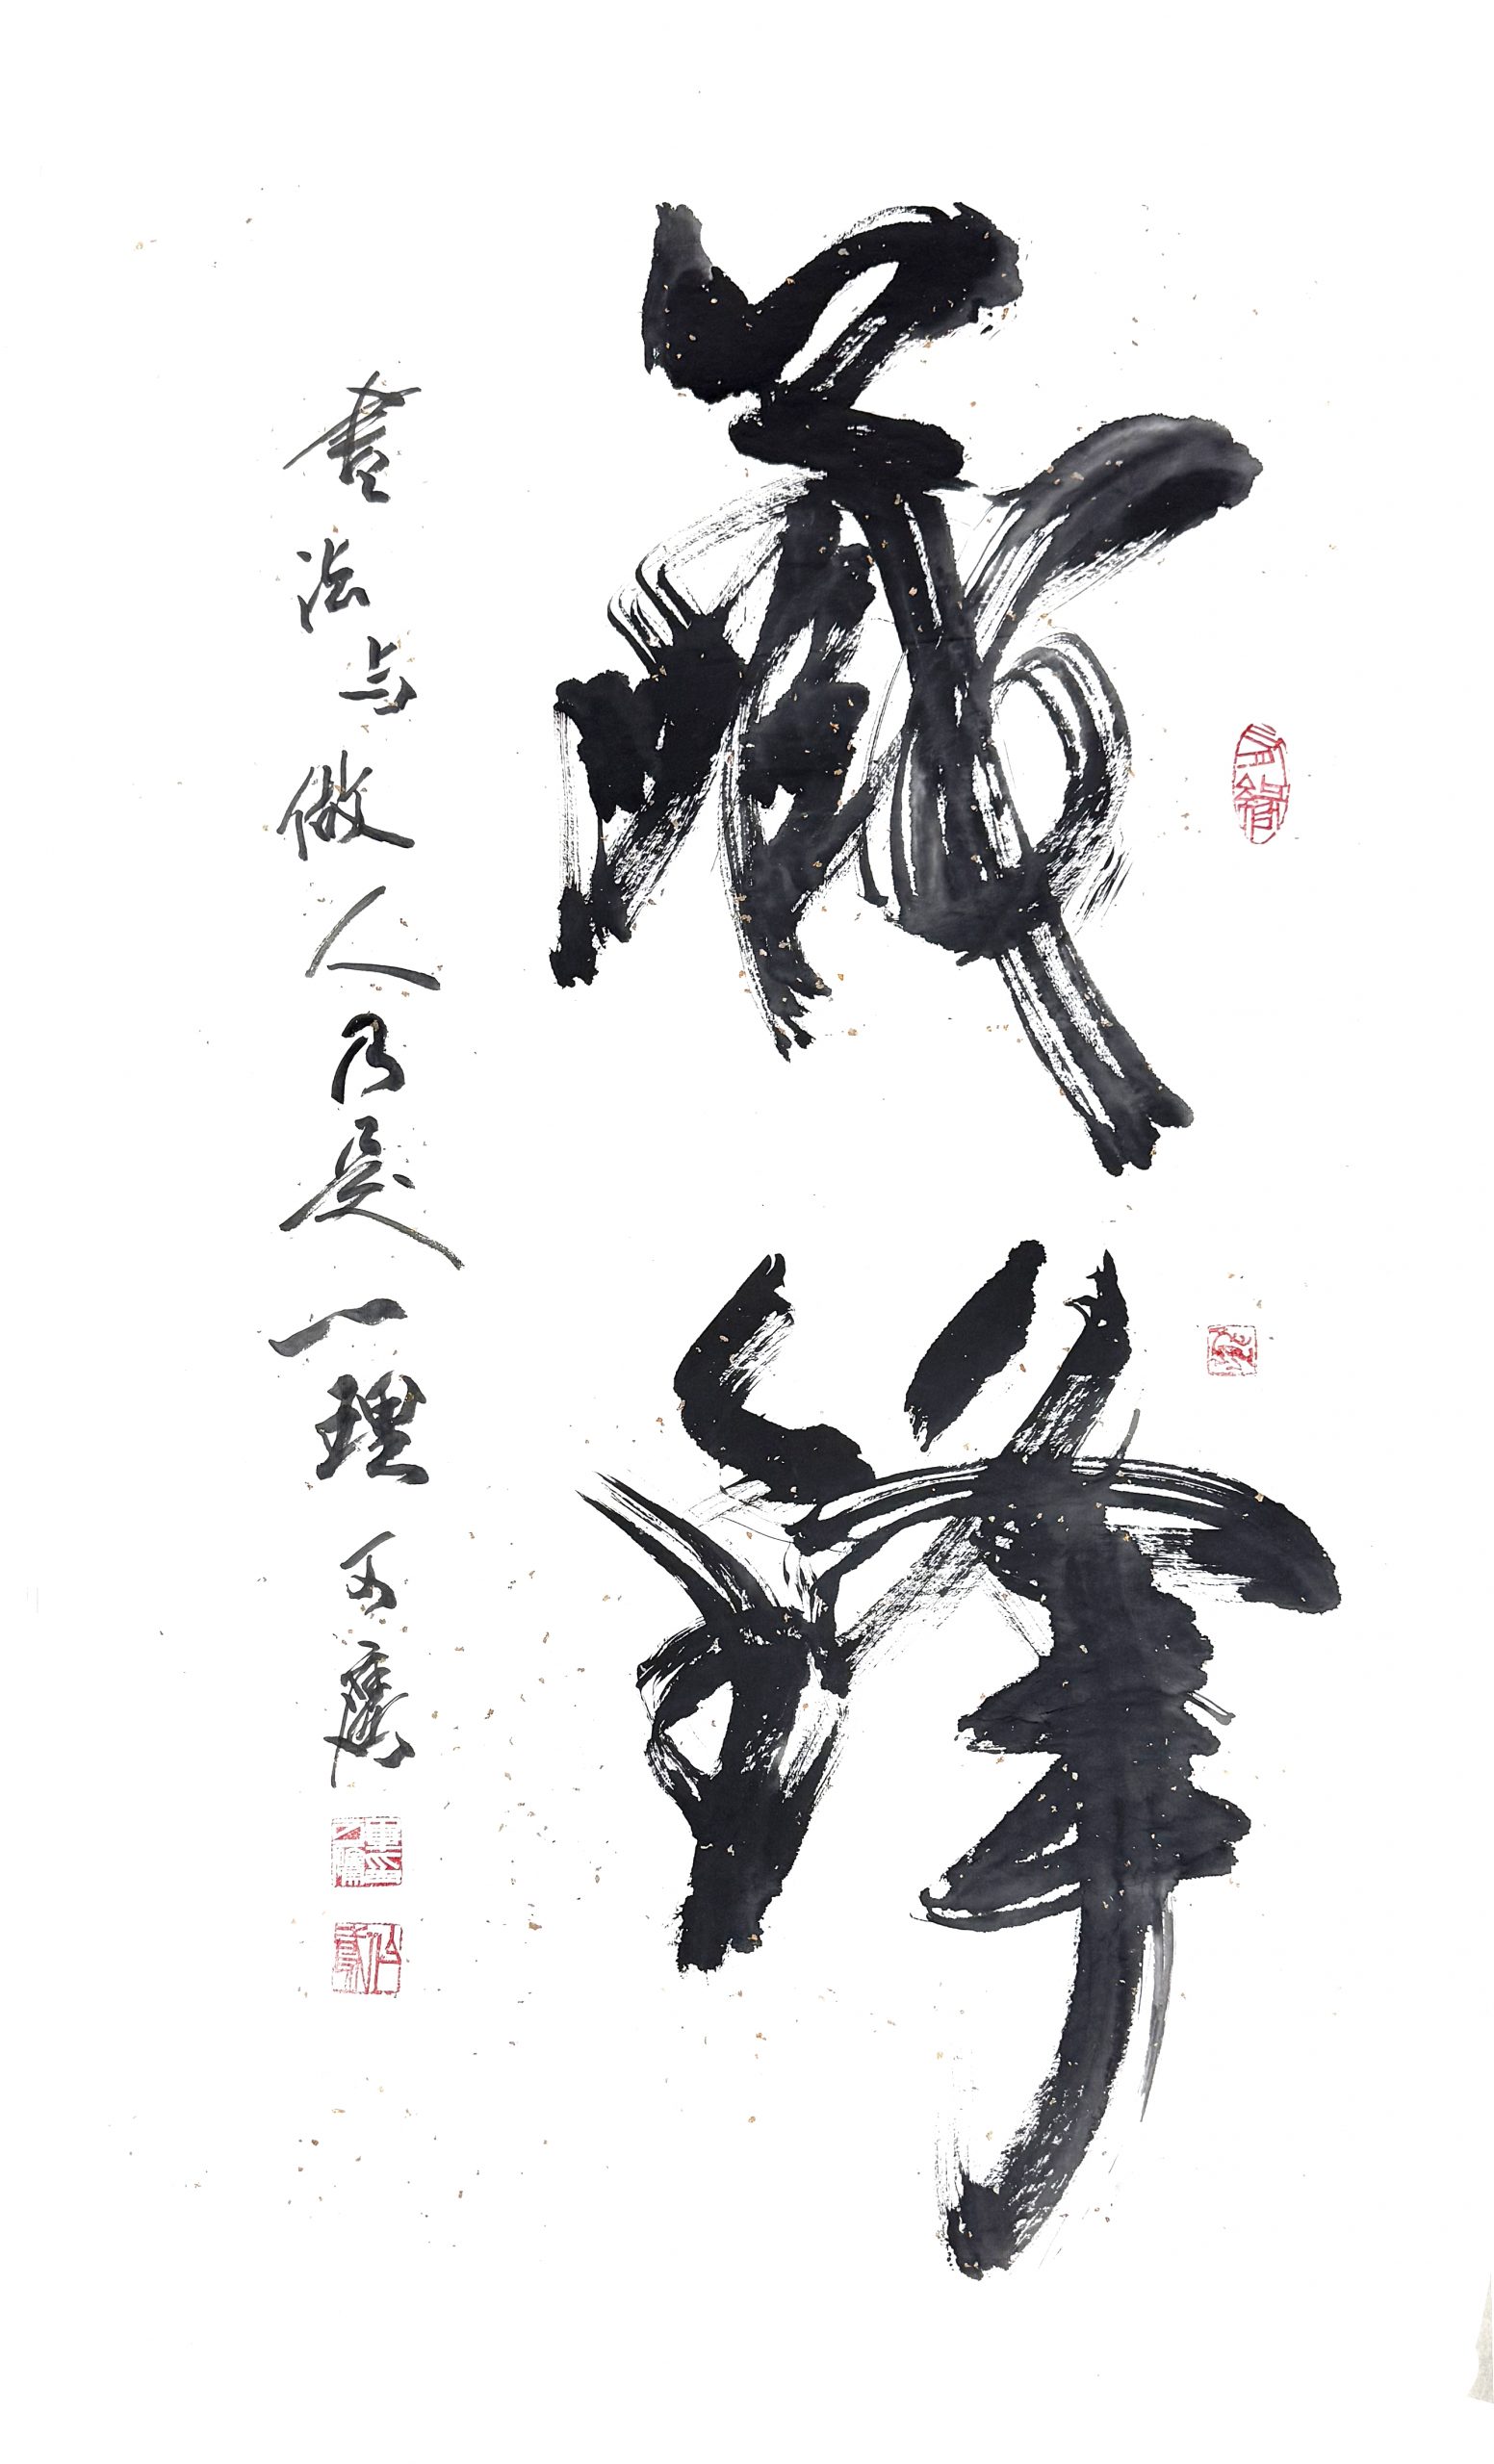 藏鋒
書法与做人乃是一理